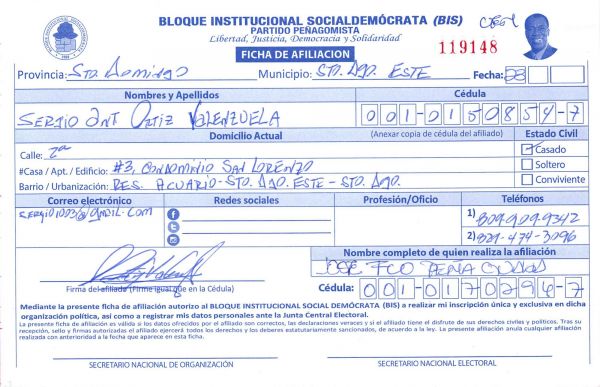 BLOQUE INSTITUCIONAL SOCIALDEMÓCRATA (BIS)
PARTIDO PEÑAGOMISTA
Libertad, Justicia, Democracia y Solidaridad
FICHA DE AFILIACION
119148
Provincia: STO. DOMINGO Municipio: STO. DGO. ESTE Fecha: 23
Nombres y Apellidos Cédula
SERGIO ANT ORTIZ VALENZUELA 001-0150854-7
Domicilio Actual (Anexar copia de cédula del afiliado) Estado Civil
Calle: 2a Casado
#Casa / Apt. / Edificio: #3, CONDOMINIO SAN LORENZO Soltero
Barrio / Urbanización: RES. ACUARIO-STO. DGO. ESTE-STO. DGO. Conviviente
Correo electrónico Redes sociales Profesión/Oficio Teléfonos
SERGIO1003@GMAIL.COM 1) 809-909-9342
2) 829-474-3096
Nombre completo de quien realiza la afiliación
JOSE FCO PEÑA
Firma del afiliado (Firme igual que en la Cédula) Cédula: 001-0170296-7
Mediante la presente ficha de afiliación autorizo al BLOQUE INSTITUCIONAL SOCIAL DEMÓCRATA (BIS) a realizar mi inscripción única y exclusiva en dicha
organización política, así como a registrar mis datos personales ante la Junta Central Electoral.
La presente ficha de afiliación es válida si los datos ofrecidos por el afiliado son correctos, las declaraciones veraces y si el afiliado tiene el disfrute de sus derechos civiles y políticos. Tras su
recepción, sello y firmas autorizadas el afiliado ejercerá todos los derechos y los deberes estatutariamente sancionados, de acuerdo a la ley. La presente afiliación anula cualquier afiliación
realizada con anterioridad a la fecha que aparece en esta ficha.
SECRETARIO NACIONAL DE ORGANIZACIÓN SECRETARIO NACIONAL ELECTORAL